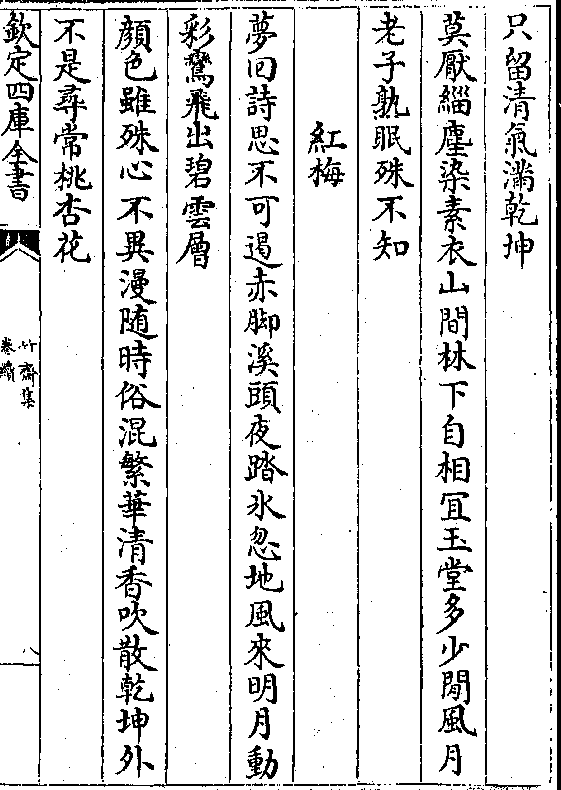 只留清氣滿乾坤
莫厭緇塵染素衣山間林下自相冝玉堂多少閒風月
老子熟眠殊不知
紅梅
夢回詩思不可遏赤脚溪頭夜踏氷忽地風來明月動
彩鸞飛出碧雲層
顔色雖殊心不異漫随時俗混繁華清香吹散乾坤外
不是尋常桃杏花
欽定四庫全書
竹齋集
卷續
八